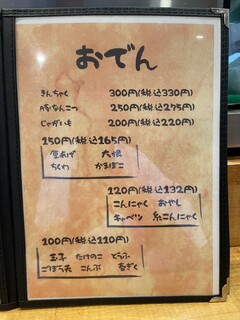 おでん
きんちゃく 300円(税込330円)
豚なんこつ 250円(税込275円)
じゃがいも 200円(税込220円)
150円(税込165円)
厚あげ 大根
ちくわ かまぼこ
120円(税込132円)
こんにゃく もやし
キャベツ 糸こんにゃく
100円(税込110円)
玉子 たけのこ とうふ
ごぼう天 こんぶ